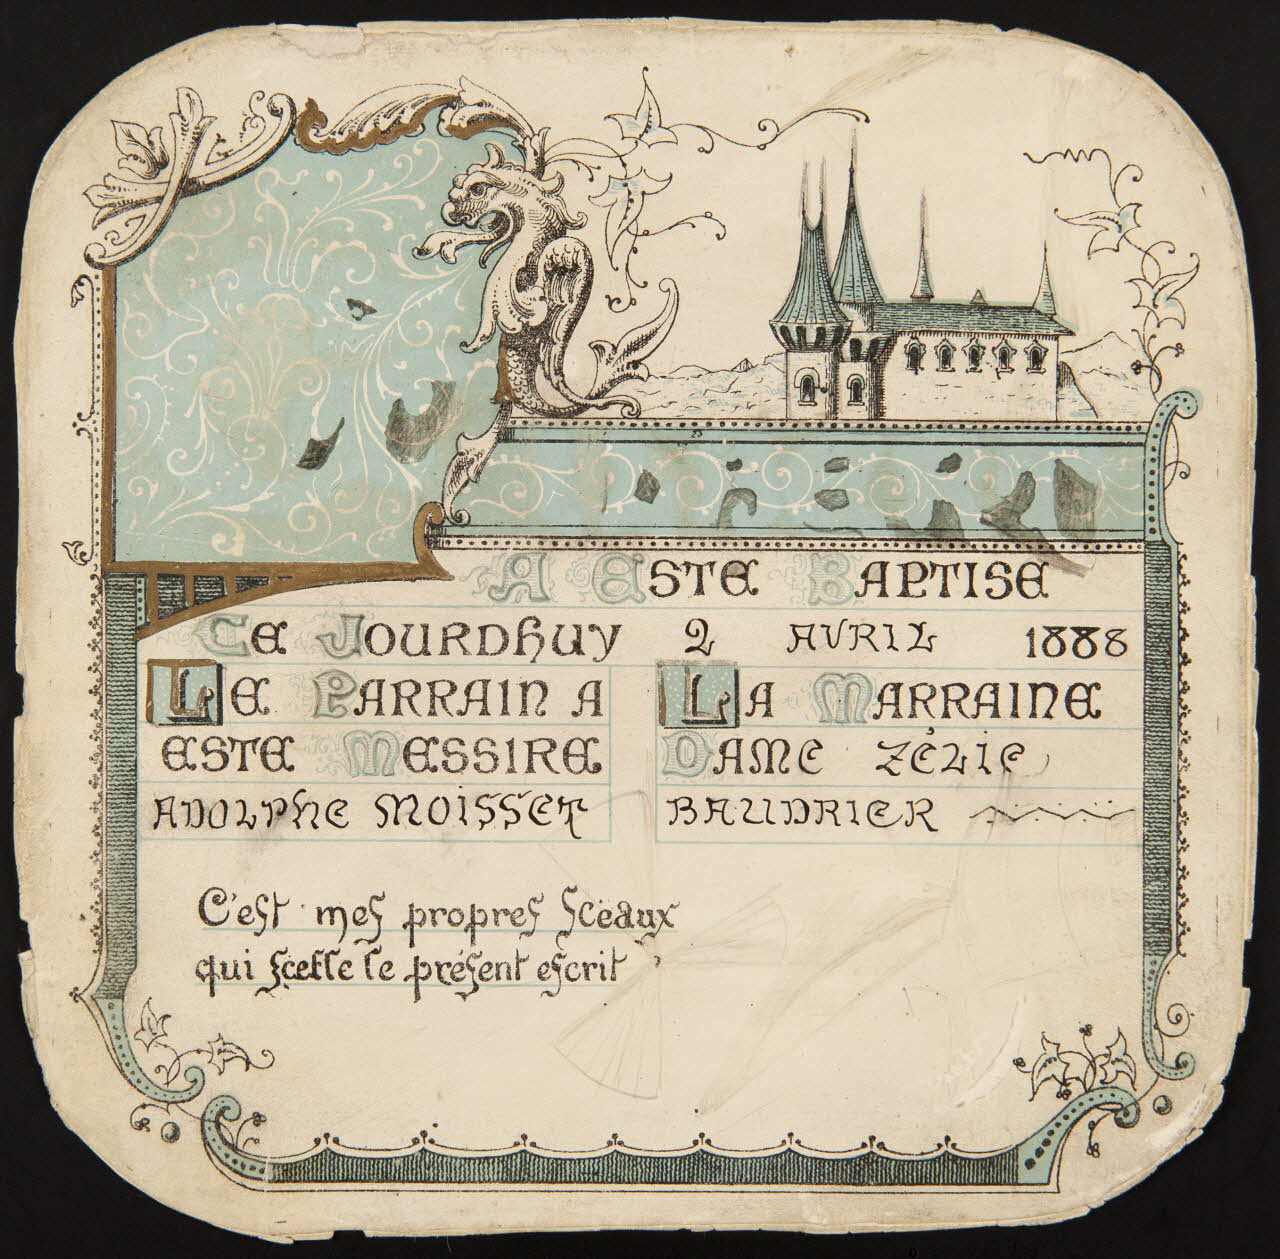 A ESTE BAPTISE
CE JOURDHUY 2 AVRIL 1888
LE PARRAIN A
ESTE MESSIRE
ADOLPHE MOISSET
LA MARRAINE
DAME ZÉLIE
BAUDRIER
C'est mes propres sceaux
qui scelle le présent escrit